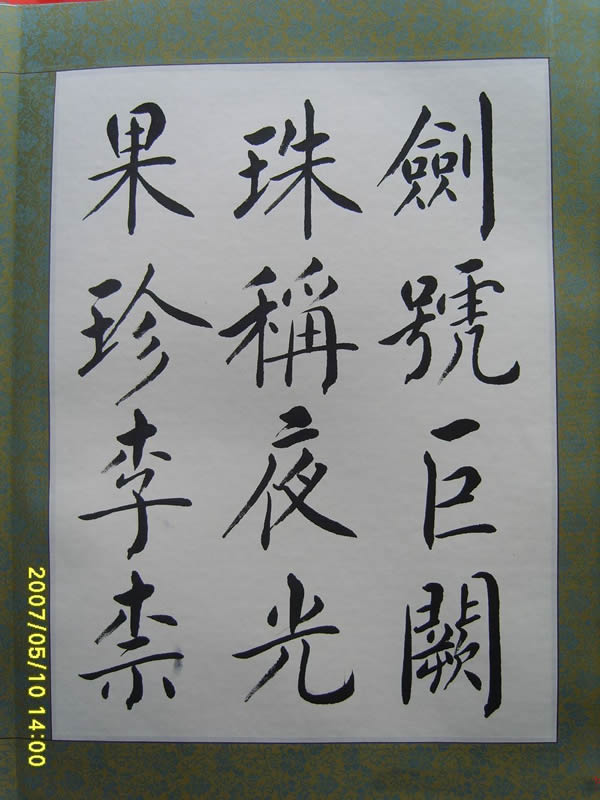 劍號巨闕
珠稱夜光
果珍李柰
2007/05/10 14:00